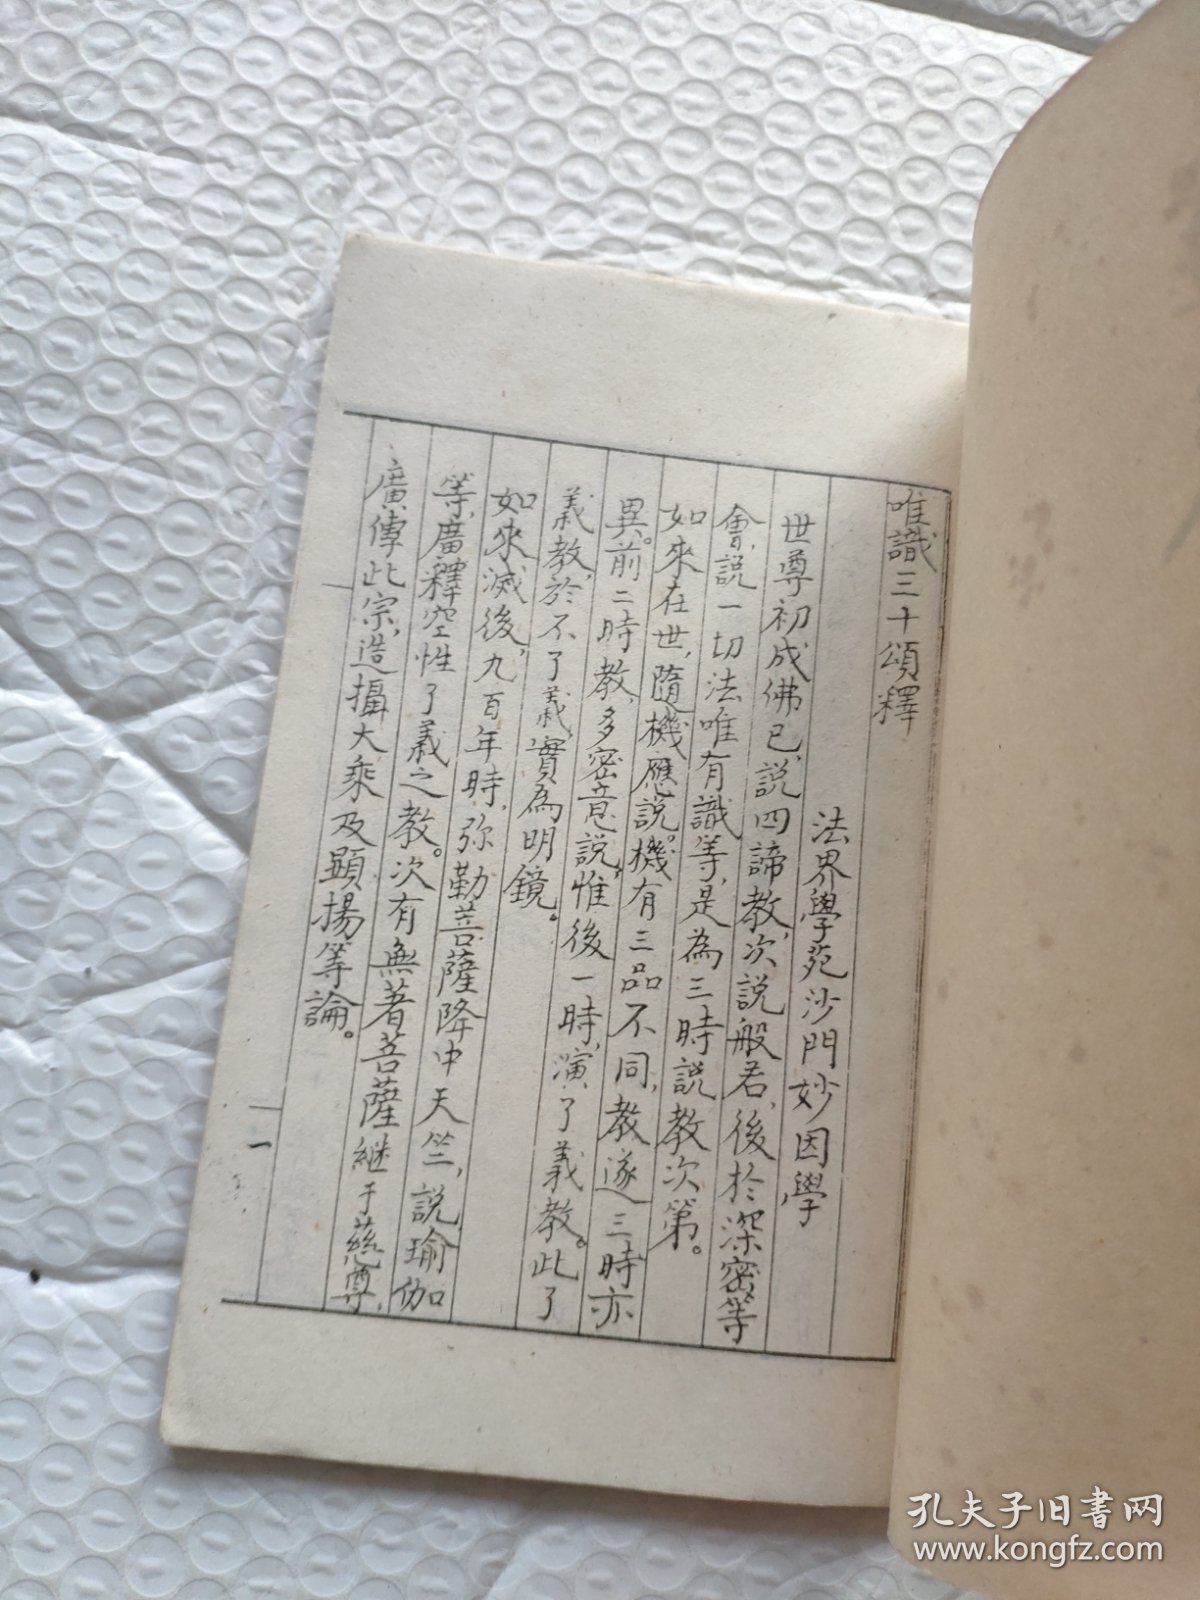 唯識三十頌釋
法界學苑沙門妙因學
世尊初成佛已，說四諦教，次說般若，後於深密等
會，說一切法唯有識等，是為三時說教次第。
如來在世，隨機應說。機有三品不同，教遂三時亦
異。前二時教，多密意說，惟後一時，演了義教。此了
義教，於不了義，實為明鏡。
如來滅後，九百年時，弥勒菩薩降中天竺，說瑜伽
等，廣釋空性了義之教。次有無著菩薩継于慈尊，
廣傳此宗，造攝大乘及顯揚等論。
一
孔夫子旧书网
www.kongfz.com